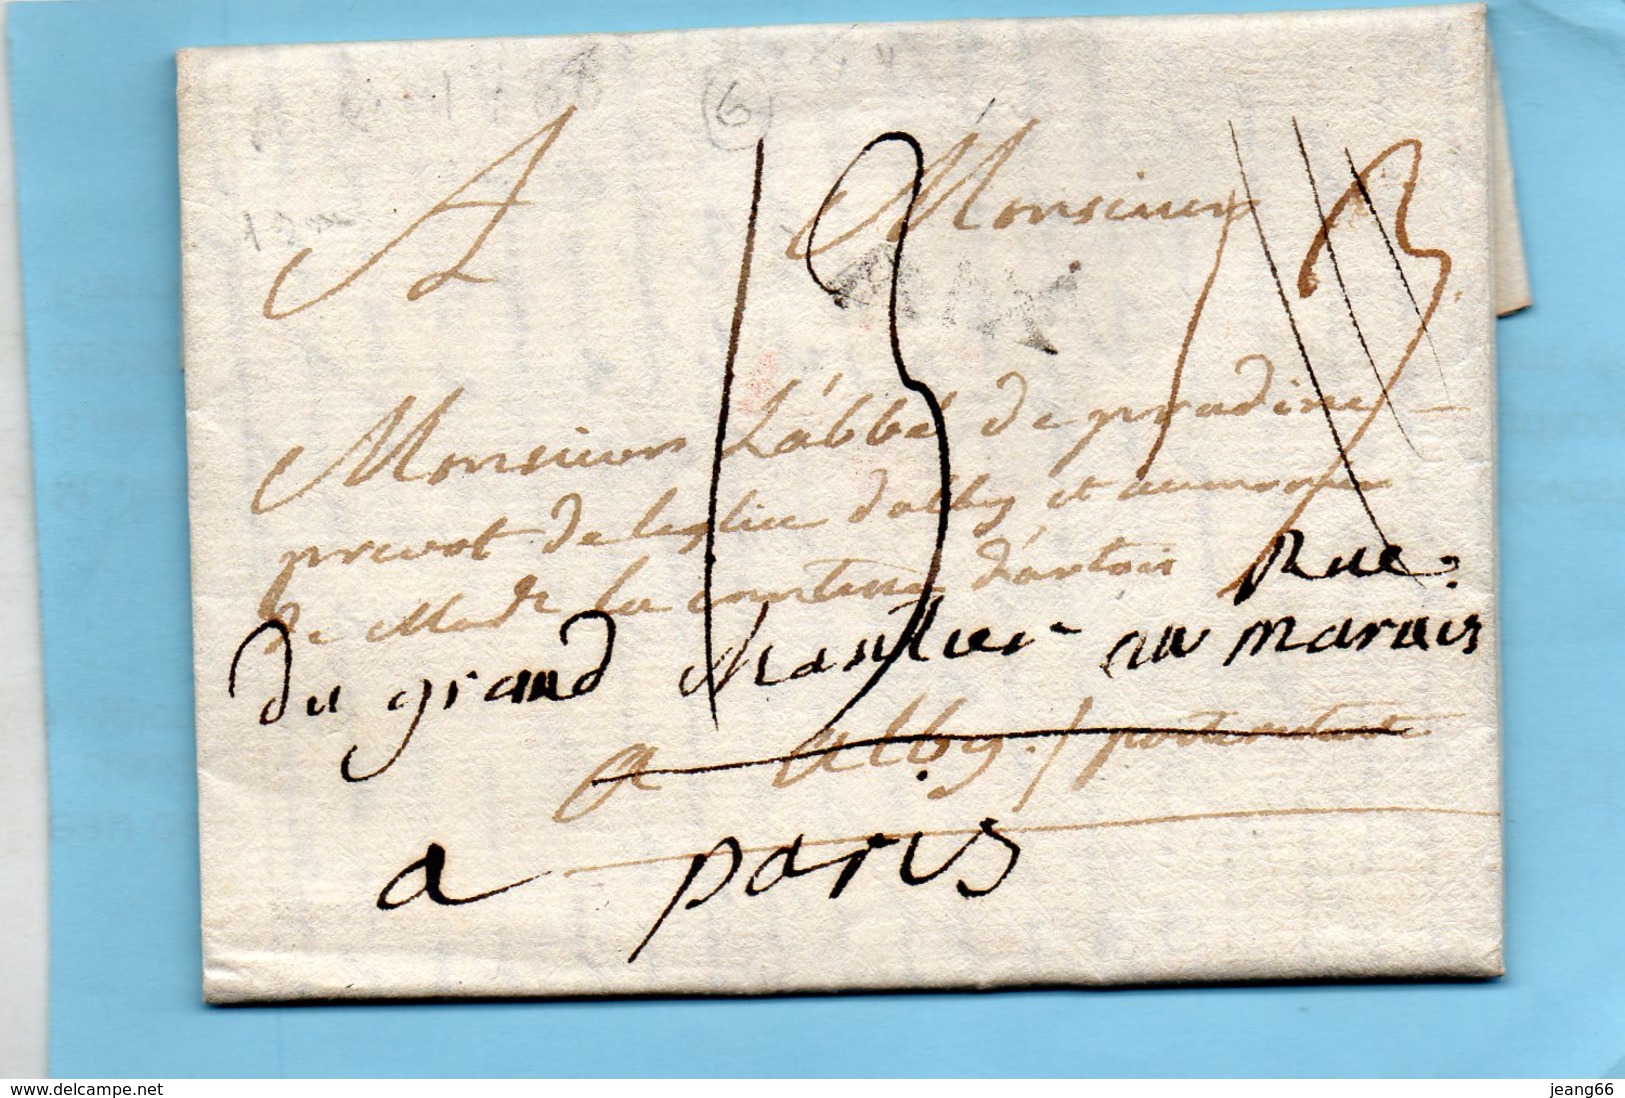 (6)
A Monsieur
13
13
Monsieur L'abbé de pradines
prevot de leglise d'alby et aumonier
de Mad la comtesse d'artois Rue
du grand Chantier au marais
a alby
a paris
www.delcampe.net
jeang66